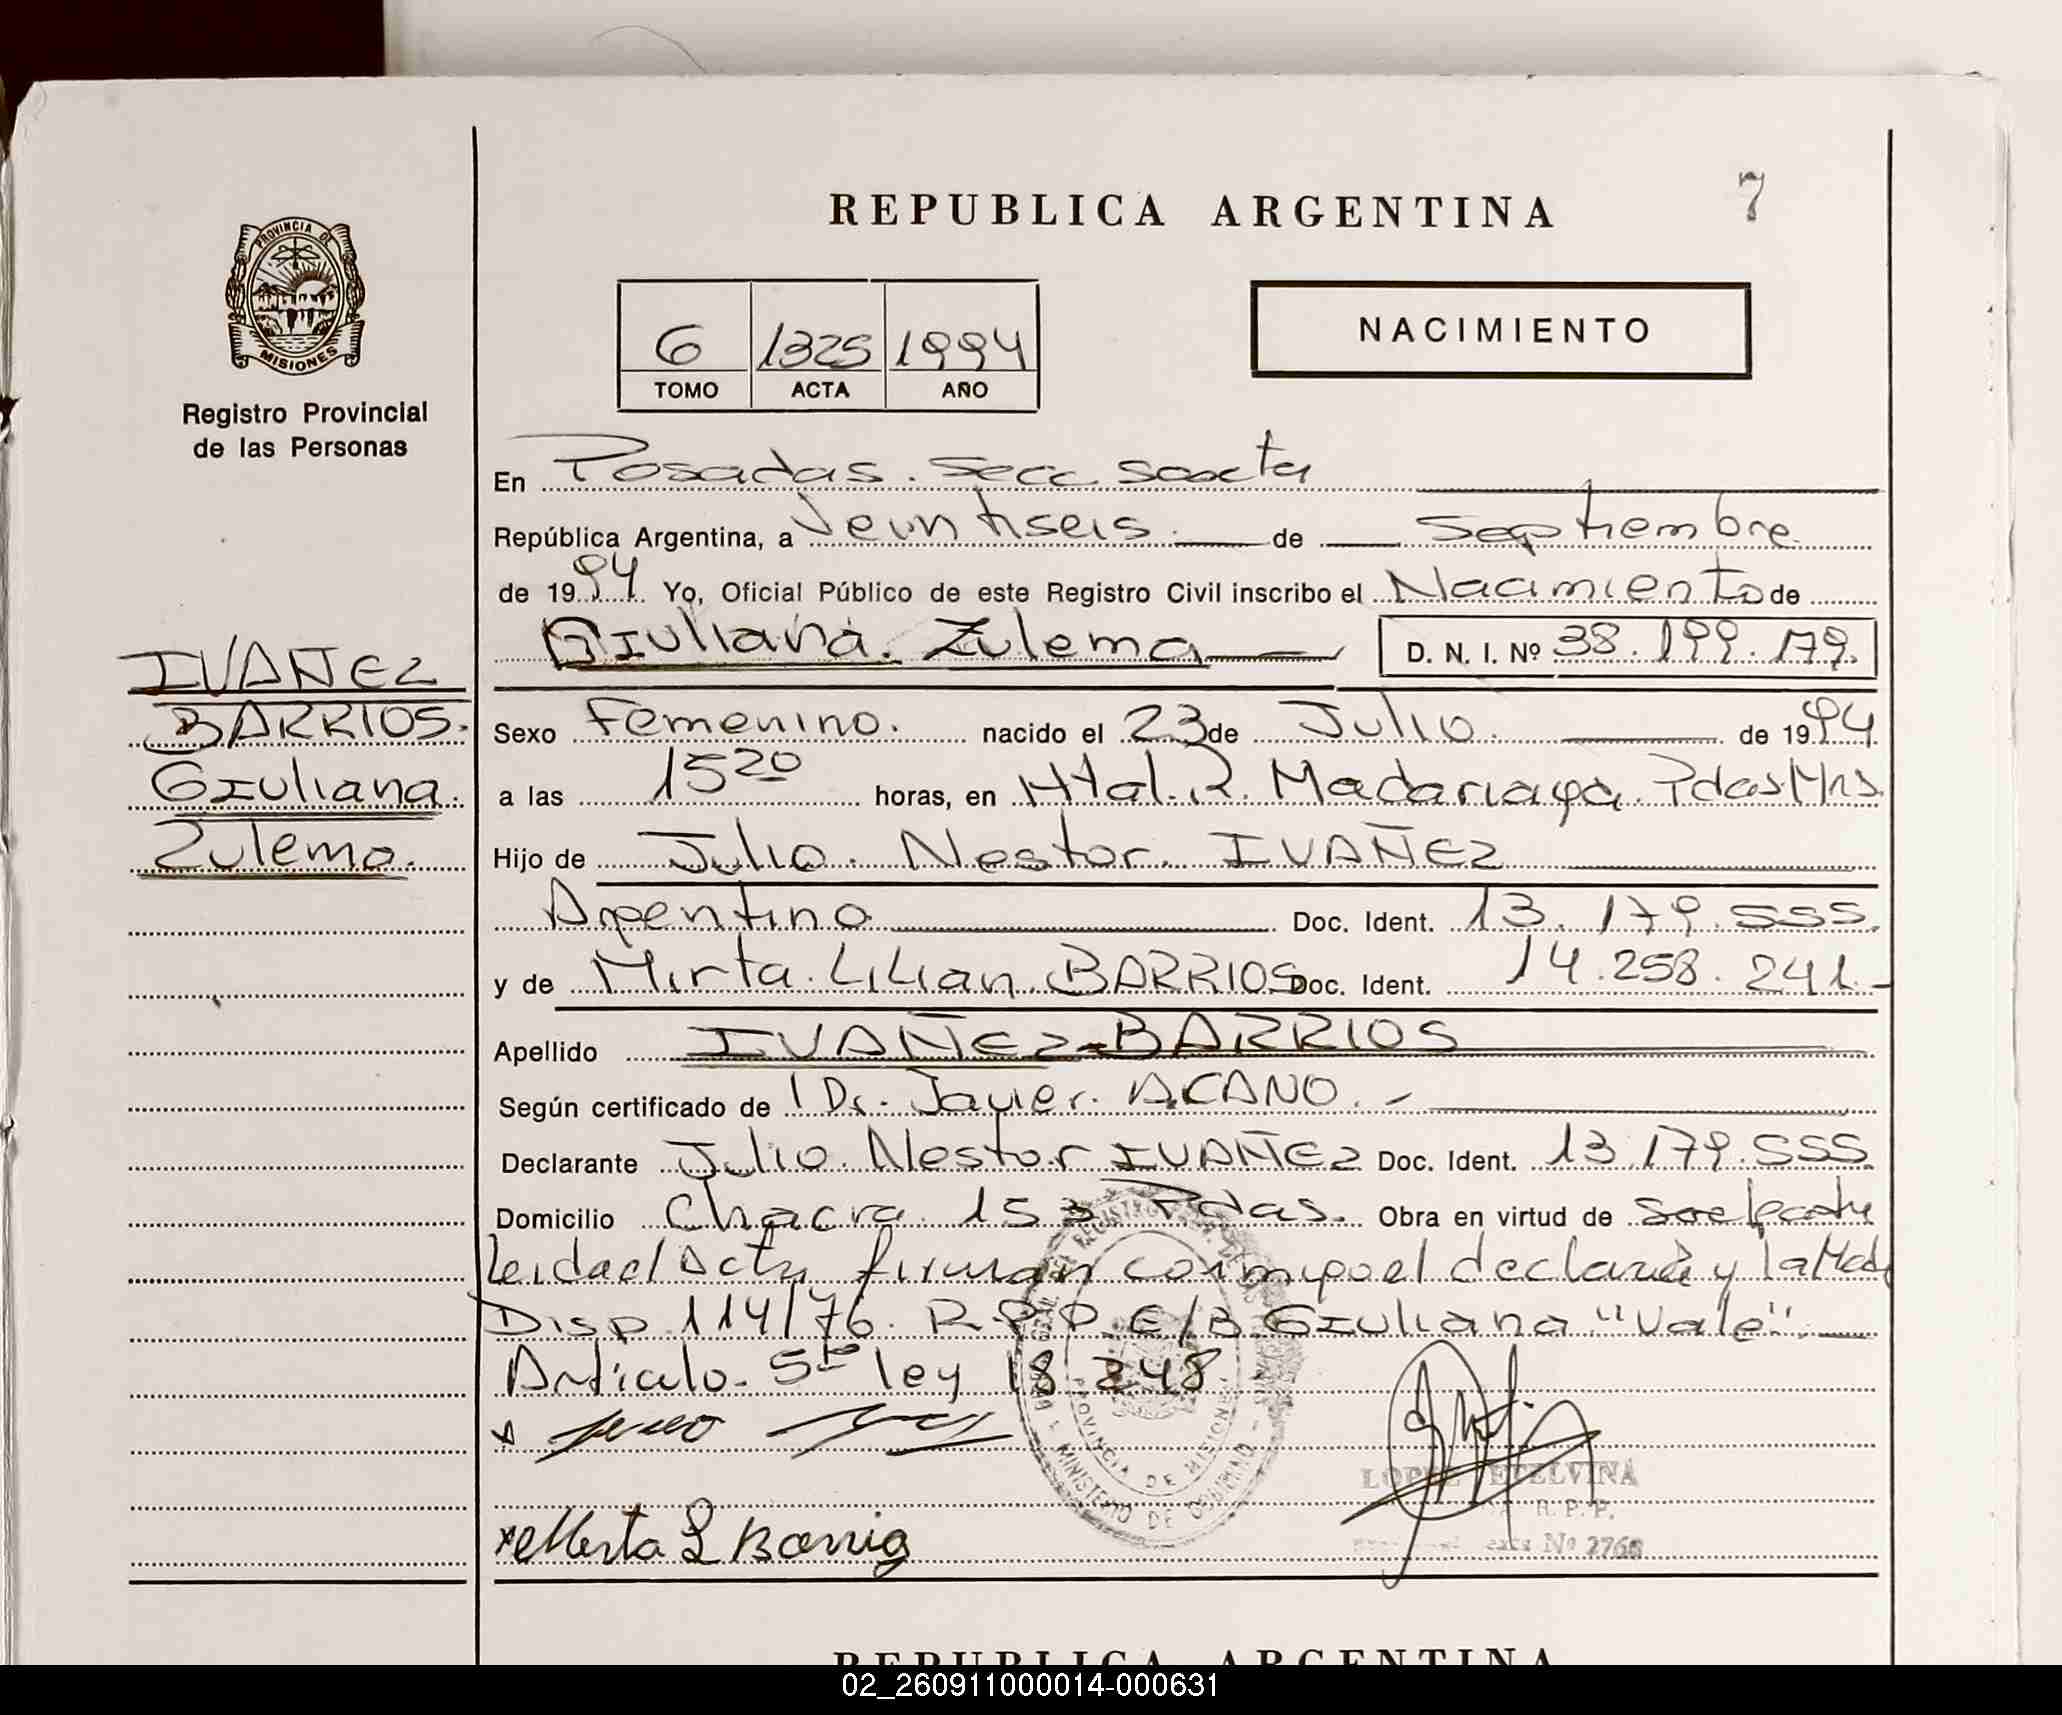 REPUBLICA ARGENTINA
7
PROVINCIA DE
MISIONES
Registro Provincial
de las Personas
6 1325 1994
TOMO ACTA AÑO
NACIMIENTO
En Posadas. Secc sexta
República Argentina, a Veintiseis de Septiembre
de 1994 Yo, Oficial Público de este Registro Civil inscribo el Nacimiento de
Giuliana. Zulema D. N. I. Nº 38.199.179.
IVAÑEZ
BARRIOS.
Giuliana.
Zulema.
Sexo Femenino. nacido el 23 de Julio. de 1994
a las 15 20 horas, en Htal. R. Madariaga. Pdas Mns.
Hijo de Julio. Nestor. IVAÑEZ
Argentino Doc. Ident. 13.179.555.
y de Mirta. Lilian. BARRIOS Doc. Ident. 14.258.241.-
Apellido IVAÑEZ-BARRIOS
Según certificado de Dr. Javier. ACANO. -
Declarante Julio. Nestor IVAÑEZ Doc. Ident. 13.179.555.
Domicilio Chacra. 153 Pdas. Obra en virtud de
Leida el Acta firman conmigo el declara y la Mad
Disp. 114/76. R.P.P. E/B Giuliana "Vale".
Articulo. 5to ley 18 248
Mirta L Barrios
PROVINCIA DE MISIONES
MINISTERIO DE GOBIERNO
LOPEZ ETELVINA
R. P. P.
Nº 2768
REPUBLICA ARGENTINA
02_260911000014-000631